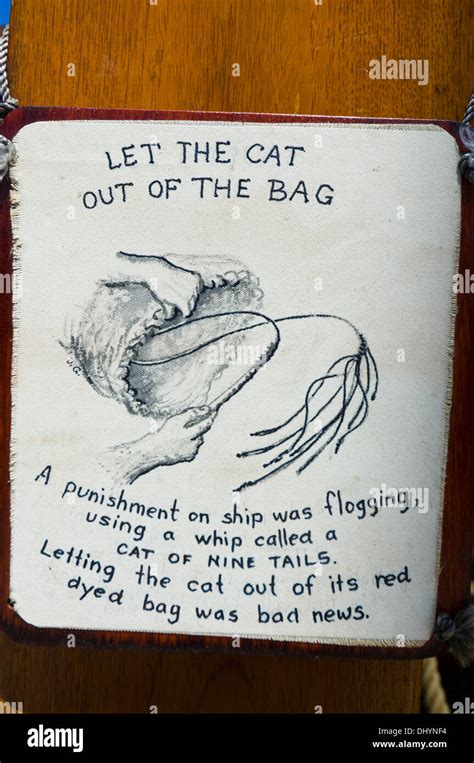 LET THE CAT
OUT OF THE BAG
J.G.
A punishment on ship was flogging,
using a whip called a
CAT OF NINE TAILS.
Letting the cat out of its red
dyed bag was bad news.
alamy
a
a
alamy
Image ID: DHYNF4
www.alamy.com